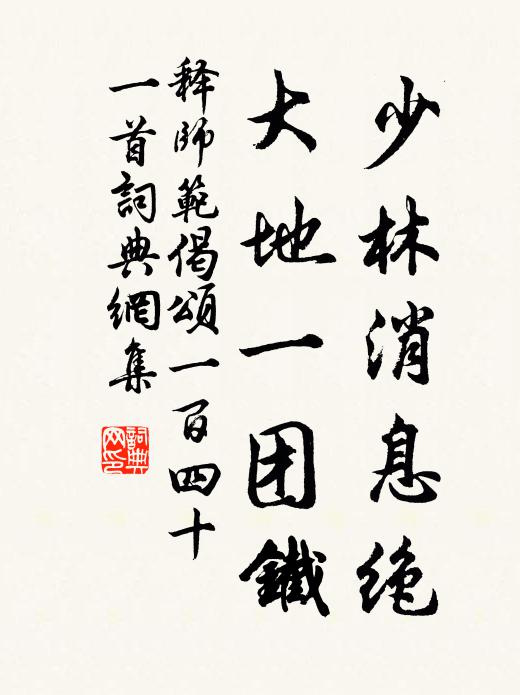 少林消息绝
大地一团鐵
释師範偈頌一百四十
一首詞典網集
詞典网印